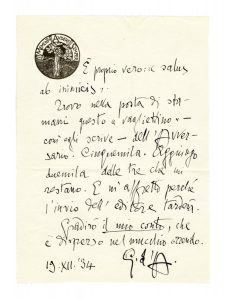 È proprio vero: « salus
ab inimicis »:
Trovo nella posta di sta-
mani questo « vaglietino » –
così egli scrive – dell'Avver-
sario. Cinquemila. Aggiungo
duemila delle tre che mi
restano. E m'affretti perché
l'invio dell'editore tarderà.
Gradirò il mio conto, che
è disperso nel mucchio orrendo.
19. XII. '34